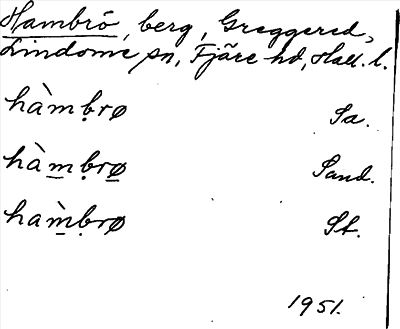 Hambrö, berg, Greggered,
Lindome sn, Fjäre hd, Hall. l.
hàm̥brø Sa.
hàm̲brø̲ Sand.
ham̲̀brø St.
1951.